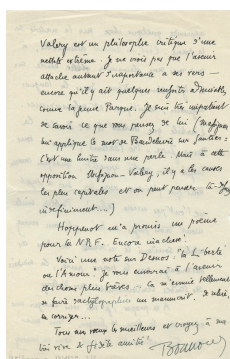 Valéry est un philosophe critique d'une
netteté extrême. Je ne crois pas que l'avenir
attache autant d'importance à ses vers —
encore qu'il y ait quelques
comme la jeune Parque. Je suis très impatient
de savoir ce que vous pensez de lui
lui applique le mot de Baudelaire sur Gautier :
C'est une huître sans une perle. Mais à cette
opposition – Valéry, il y a les causes
les plus capitales et on peut penser
indéfiniment...)
Hoppenot m'a promis un poème
pour la N.R.F. Encore
Voici une note sur Desnos : "la Liberté
ou l'Amour". Je vous enverrai à l'avenir
des choses plus brèves... Ça m'ennuie tellement
de faire dactylographier un manuscrit,
de corriger...
Tous mes vœux les meilleurs et croyez à ma
très vive & fidèle amitié